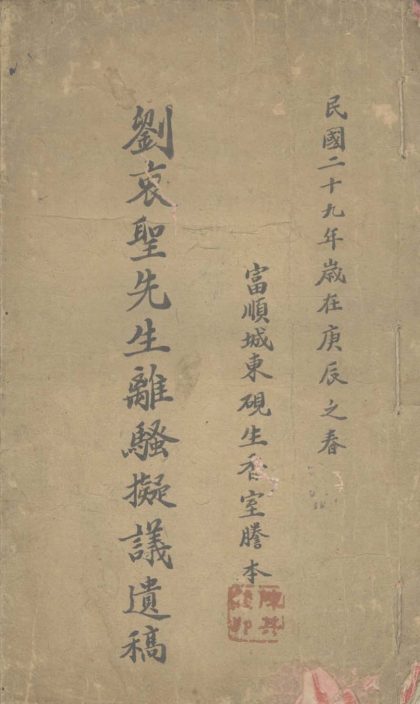 民國二十九年歲在庚辰之春
富順城東硯生香室謄本
劉裒聖先生離騷擬議遺稿